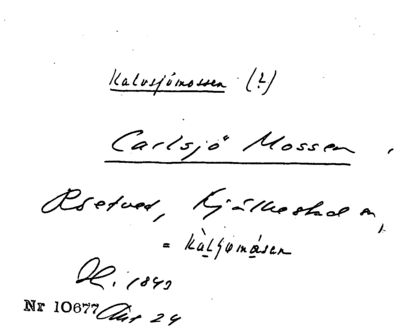 Kalvsjömossen (?)
Carlsjö Mossen,
Rsetved, Kjälkestad sn,
= kàlfjomåsen
1843
Nr 10677 Akt 24